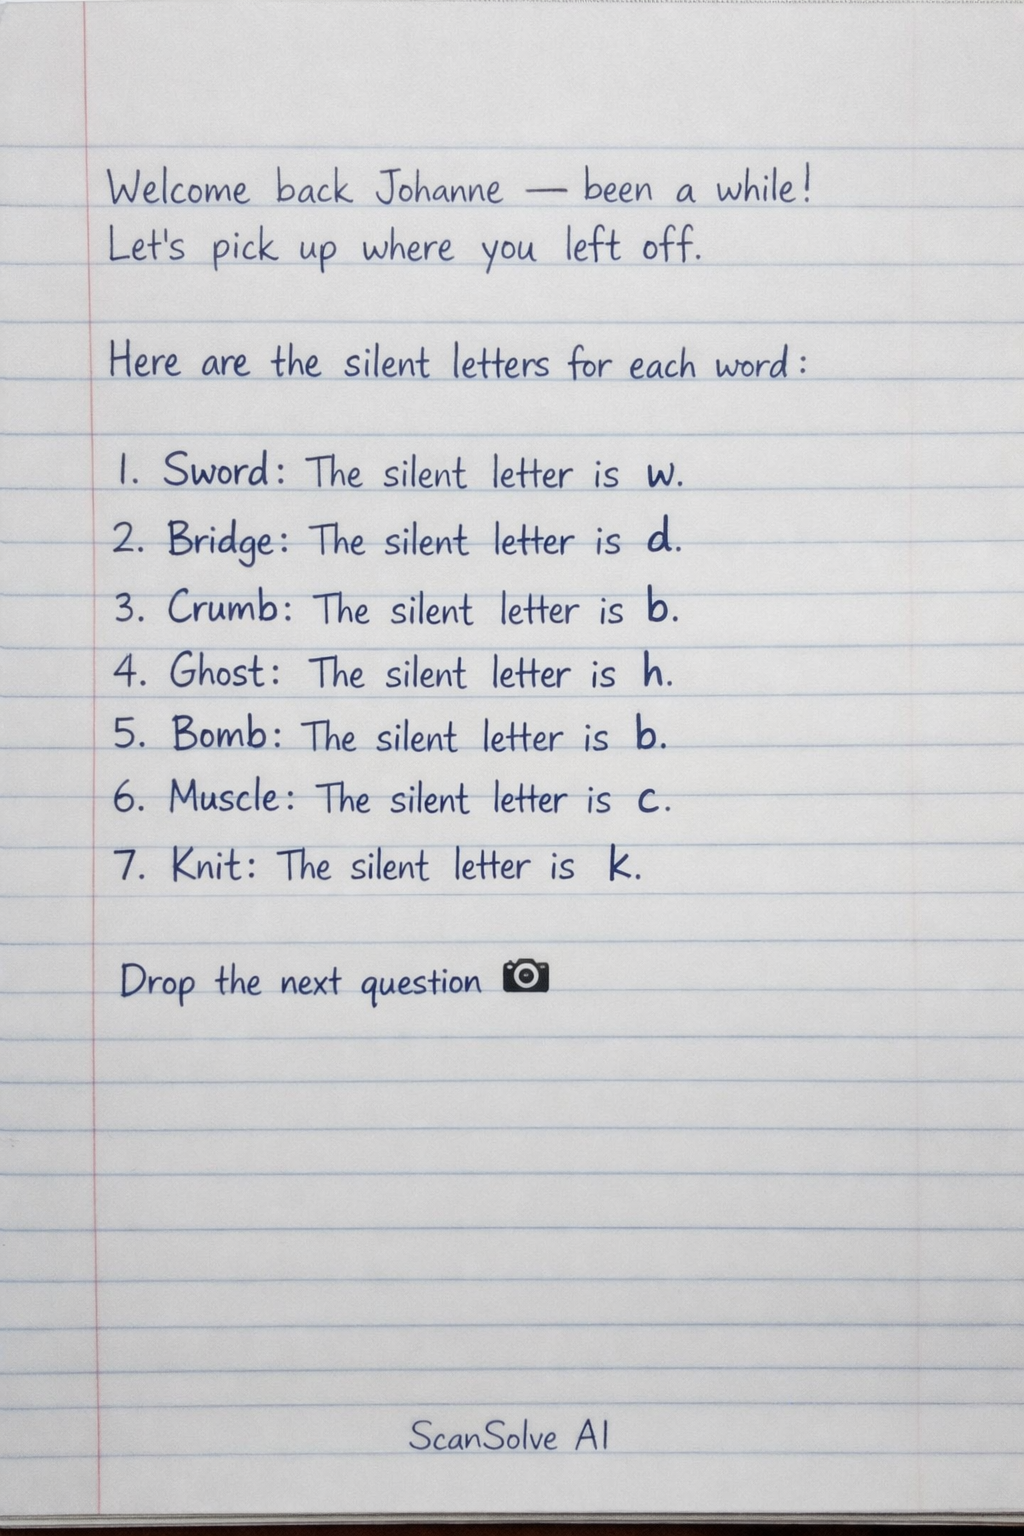 Welcome back Johanne — been a while!
Let's pick up where you left off.
Here are the silent letters for each word:
1. Sword: The silent letter is w.
2. Bridge: The silent letter is d.
3. Crumb: The silent letter is b.
4. Ghost: The silent letter is h.
5. Bomb: The silent letter is b.
6. Muscle: The silent letter is c.
7. Knit: The silent letter is k.
Drop the next question 📷
ScanSolve AI